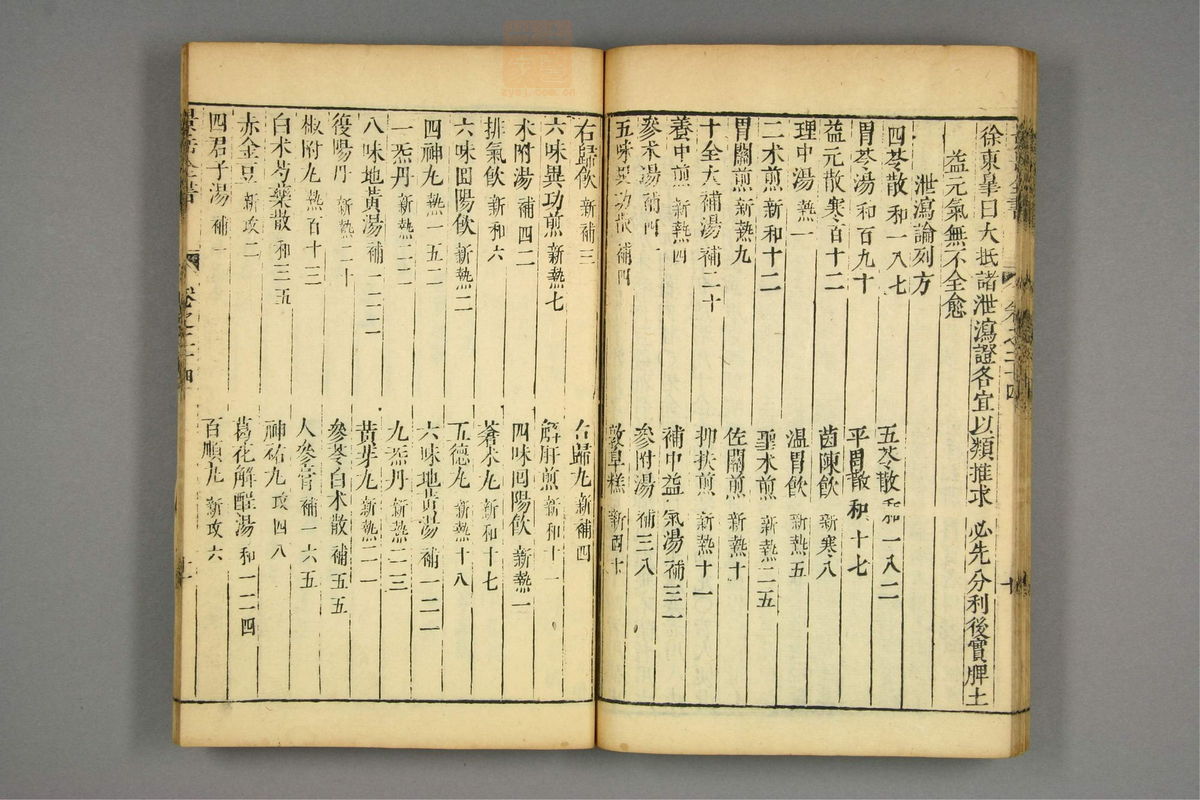 徐東皐曰大抵諸泄瀉證各宜以類推求必先分利後實脾土
益元氣無不全愈
泄瀉論列方
四苓散 和一八七 五苓散 和一八二
胃苓湯 和百九十 平胃散 和十七
益元散 寒百十二 茵陳飲 新寒八
理中湯 熱一 溫胃飲 新熱五
二朮煎 新和十二 聖朮煎 新熱二五
胃關煎 新熱九 佐關煎 新熱十
十全大補湯 補二十 抑扶煎 新熱十一
養中煎 新熱四 補中益氣湯 補三一
參朮湯 補四一 參附湯 補三八
五味異功散 補四 敦阜糕 新固十
右歸飲 新補三 右歸丸 新補四
六味異功煎 新熱七 解肝煎 新和十一
朮附湯 補四二 四味回陽飲 新熱一
排氣飲 新和六 蒼朮丸 新和十七
六味回陽飲 新熱二 五德丸 新熱十八
四神丸 熱一五二 六味地黃湯 補一二一
一炁丹 新熱二二 九炁丹 新熱二三
八味地黃湯 補一二二 黃芽丸 新熱二一
復陽丹 新熱二十 參苓白朮散 補五五
椒附丸 熱百十三 人參膏 補一六五
白朮芍藥散 和三五 神祐丸 攻四八
赤金豆 新攻二 葛花解酲湯 和一二四
四君子湯 補一 百順丸 新攻六
景岳全書 卷之二十四